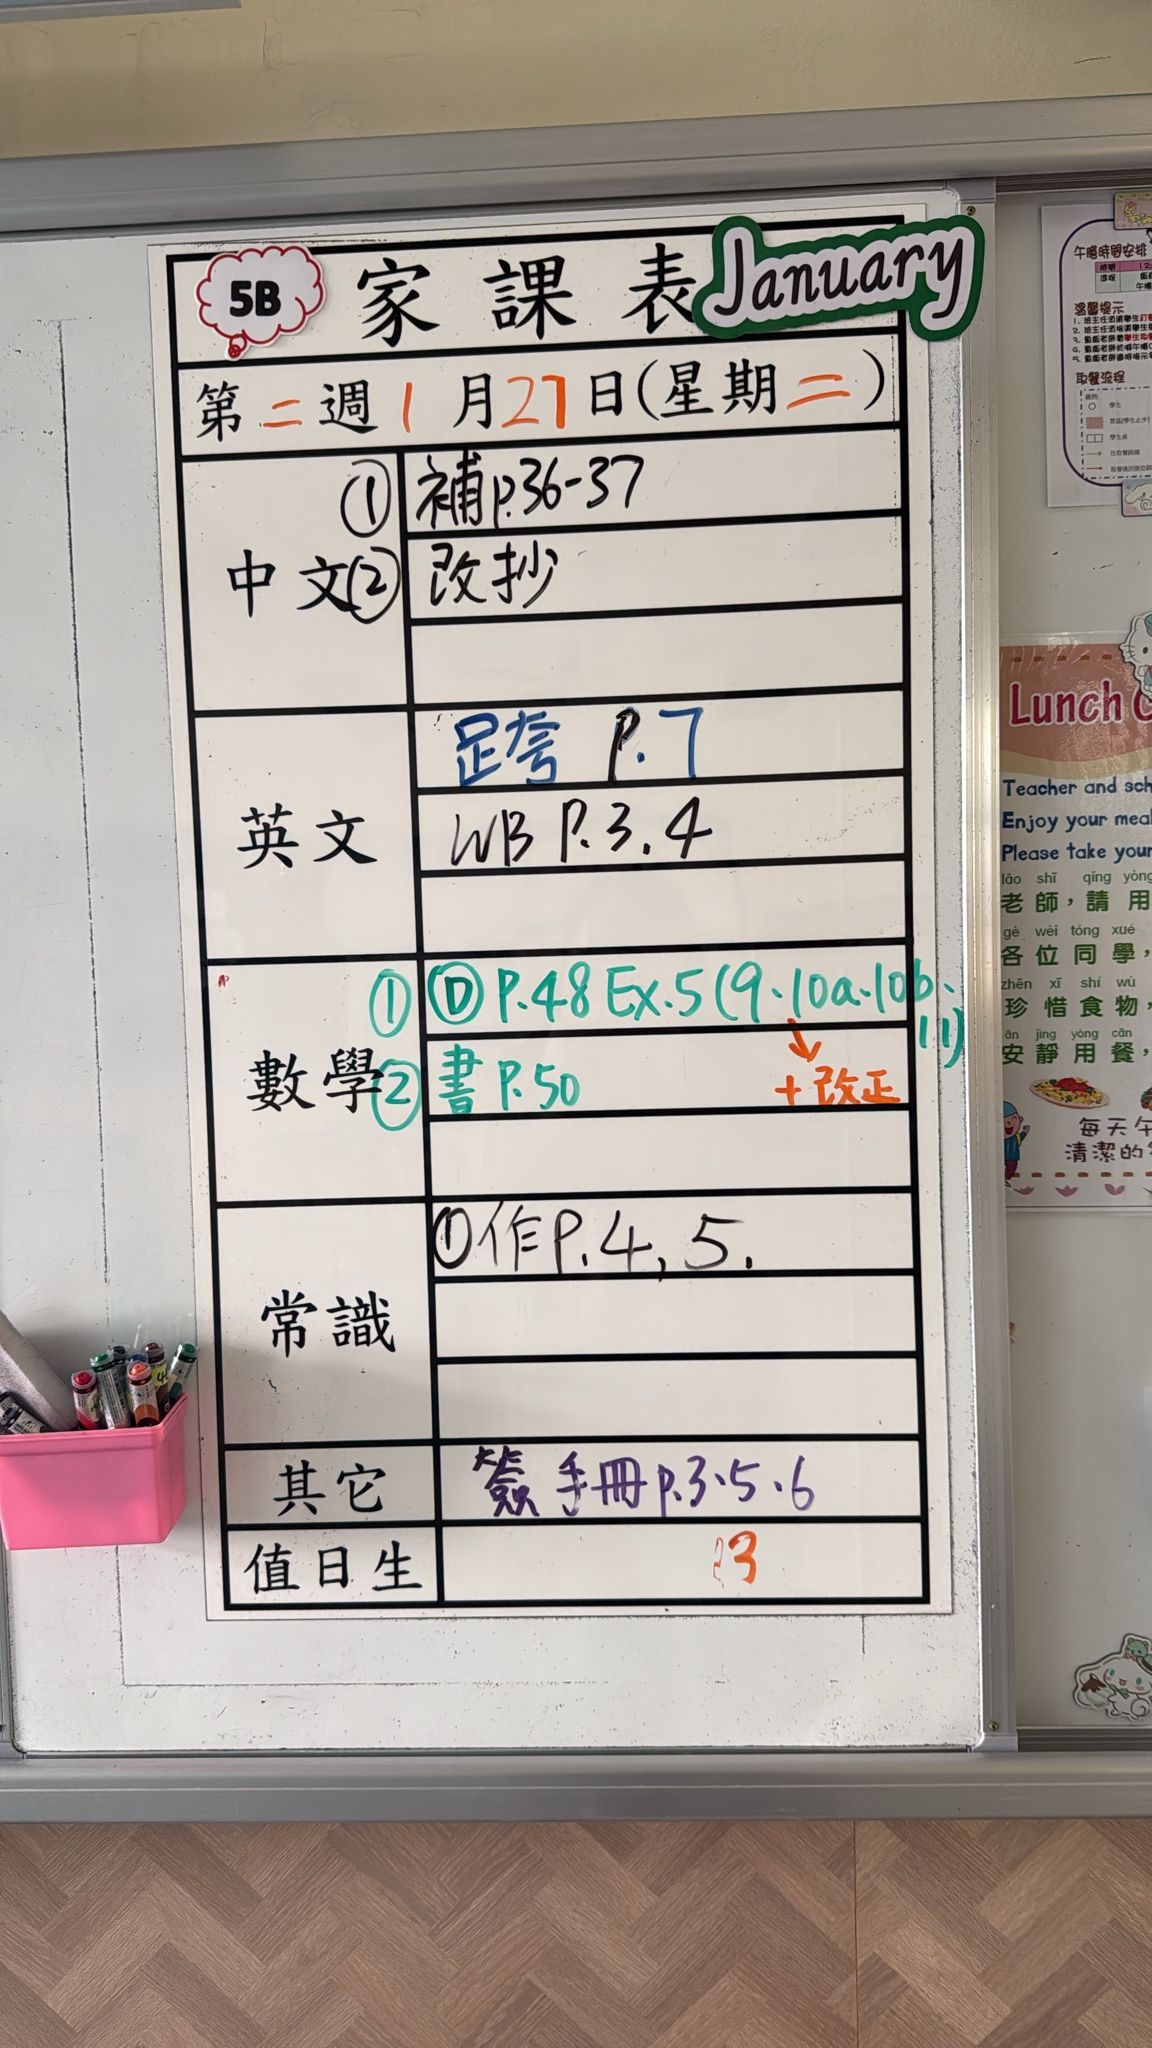 5B 家課表 January
第二週 1月27日(星期二)
中文
① 補p.36-37
② 改抄
英文
P.7
WB P.3.4
數學
① Ⓓ P.48 Ex.5 (9.10a.10b.11)
② 書 P.50
+改正
常識
① 作P.4, 5.
其它
簽 手冊 p.3.5.6
值日生
3
午膳時間安排
溫馨提示
取餐流程
學生
Lunch
Teacher and
Enjoy your
Please take
lǎo shī qǐng yòng
老師，請用
gè wèi tóng xué
各位同學，
zhēn xī shí wù
珍惜食物，
ān jìng yòng cān
安靜用餐，
每天
清潔的